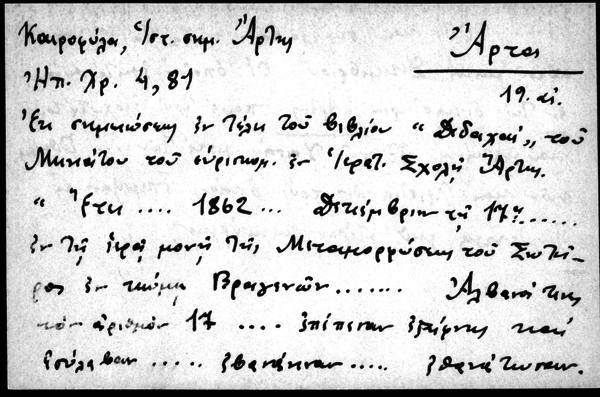 Καιροφύλα, Ἱστ. σημ. Ἄρτης
Ἄρτα
Ἠπ. Χρ. 4, 81
19. αἰ.
Ἐκ σημειώσεως ἐν τέλει τοῦ βιβλίου "Διδαχαί" τοῦ
Μηνιάτου τοῦ εὑρισκομ. ἐν Ἱερατ. Σχολῇ Ἄρτης.
"Ἔτει .... 1862 ... Δεκεμβρίου τῇ 17ῃ ......
ἐν τῇ ἱερᾷ μονῇ τῆς Μεταμορφώσεως τοῦ Σωτῆ-
ρος ἐν κώμῃ ...... Ἀλβανοί τινες
τὸν ἀριθμὸν 17 .... ἐπέπεσαν ἐξαίφνης καὶ
ἐσύλαβαν ..... ..... ἐθανάτωσαν.